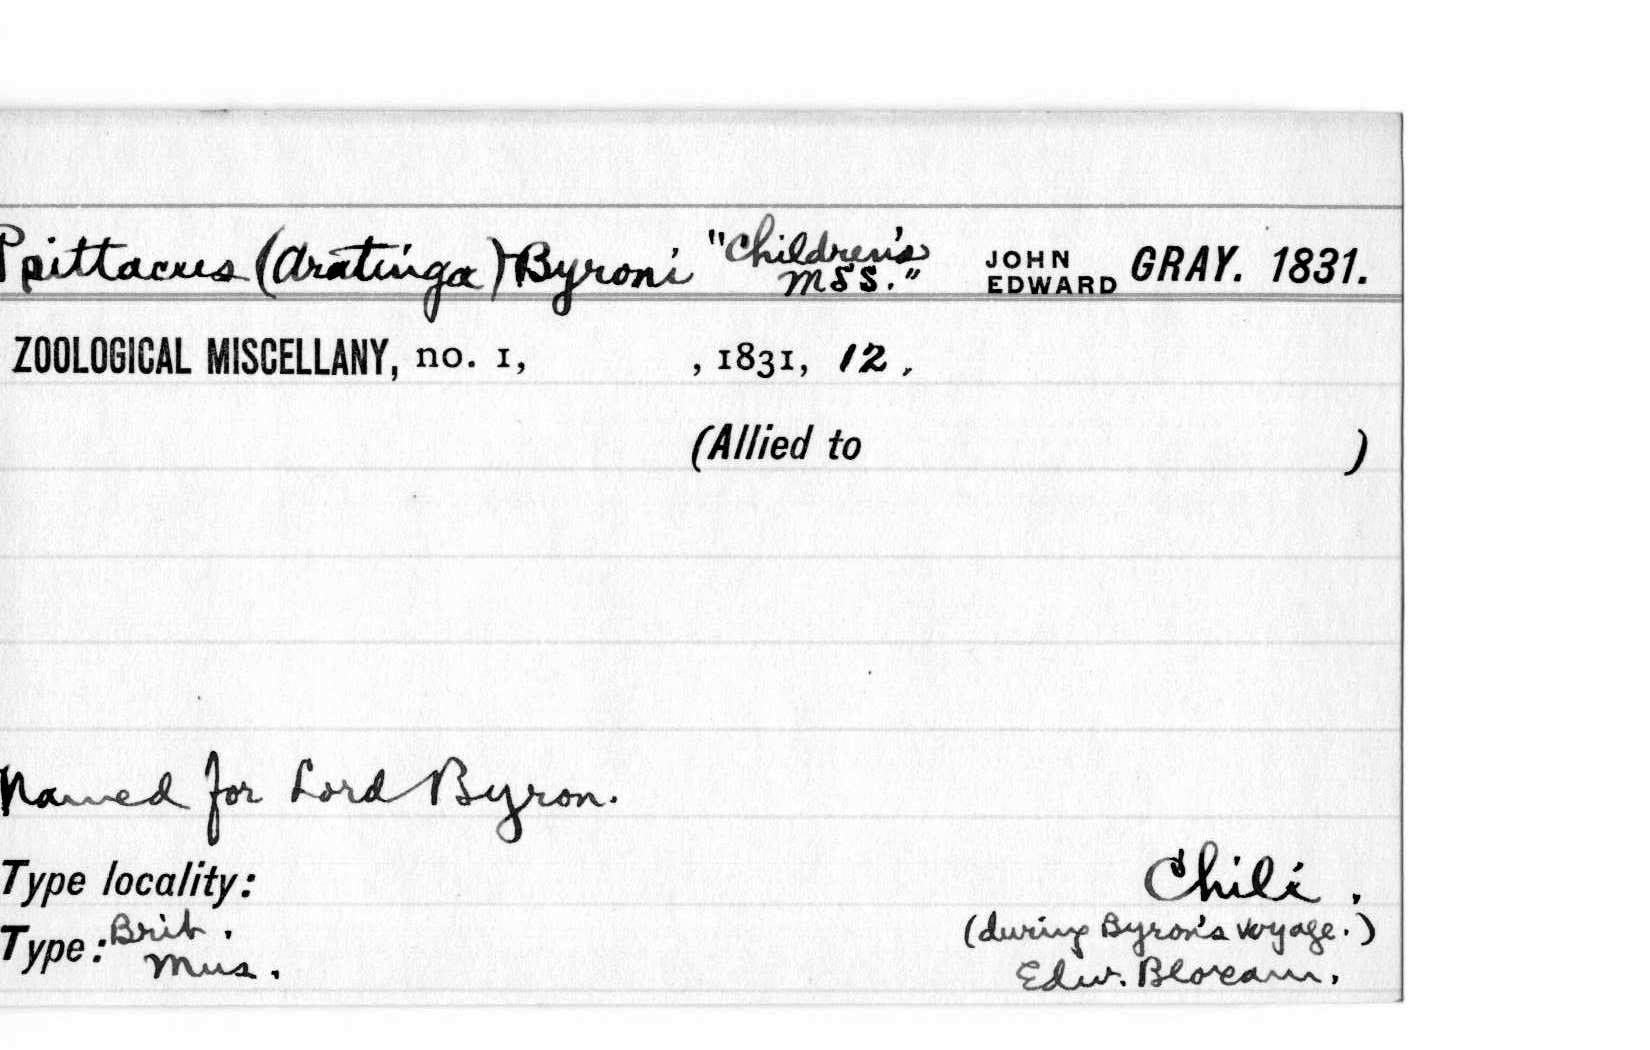 Psittacus (Aratinga) Byroni "Children's MSS." JOHN EDWARD GRAY. 1831.
ZOOLOGICAL MISCELLANY, no. 1, , 1831, 12.
(Allied to )
Named for Lord Byron.
Type locality: Chili.
(during Byron's voyage.)
Type: Brit. Mus. Edw. Bloxam.